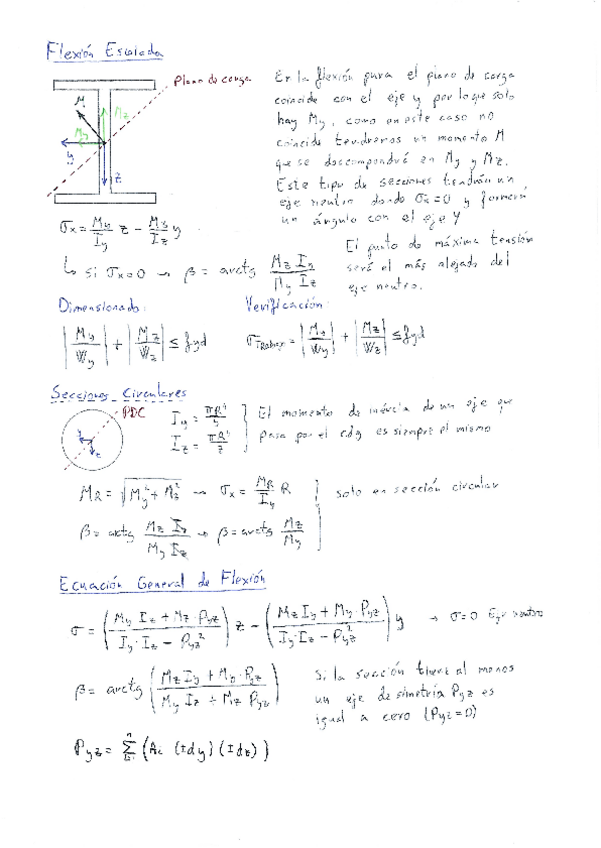 Flexión Esviada
Plano de carga
M
Mz
My
y
z
En la flexión pura el plano de carga
coincide con el eje y por lo que solo
hay My, como en este caso no
coincide tendremos un momento M
que se descompondrá en My y Mz.
Este tipo de secciones tendrán un
eje neutro donde σx=0 y formará
un ángulo con el eje y
σx = My/Iy z - Mz/Iz y
↳ si σx=0 → β = arctg Mz Iy / My Iz
El punto de máxima tensión
será el más alejado del
eje neutro.
Dimensionado: Verificación:
|My/Wy| + |Mz/Wz| ≤ fyd
= |My/Wy| + |Mz/Wz| ≤ fyd
Secciones Circulares
PDC
Iy = πR⁴/4
Iz =
El momento de inércia de un eje que
pasa por el cdg es siempre el mismo
MR = √(My² + Mz²) → σx = MR/Iy R } solo en sección circular
β = arctg Mz Iy / My Iz → β = arctg Mz/My
Ecuación General de Flexión
σ = (My Iz + Mz · Pyz / Iy · Iz - Pyz²) z - (Mz Iy + My · Pyz / Iy · Iz - Pyz²) y → σ=0 Eje neutro
β = arctg (Mz Iy + My · Pyz / My Iz + Mz Pyz)
Si la sección tiene al menos
un eje de simetría Pyz es
igual a cero (Pyz=0)
Pyz = Σ (Ai (Idy) (Idz))